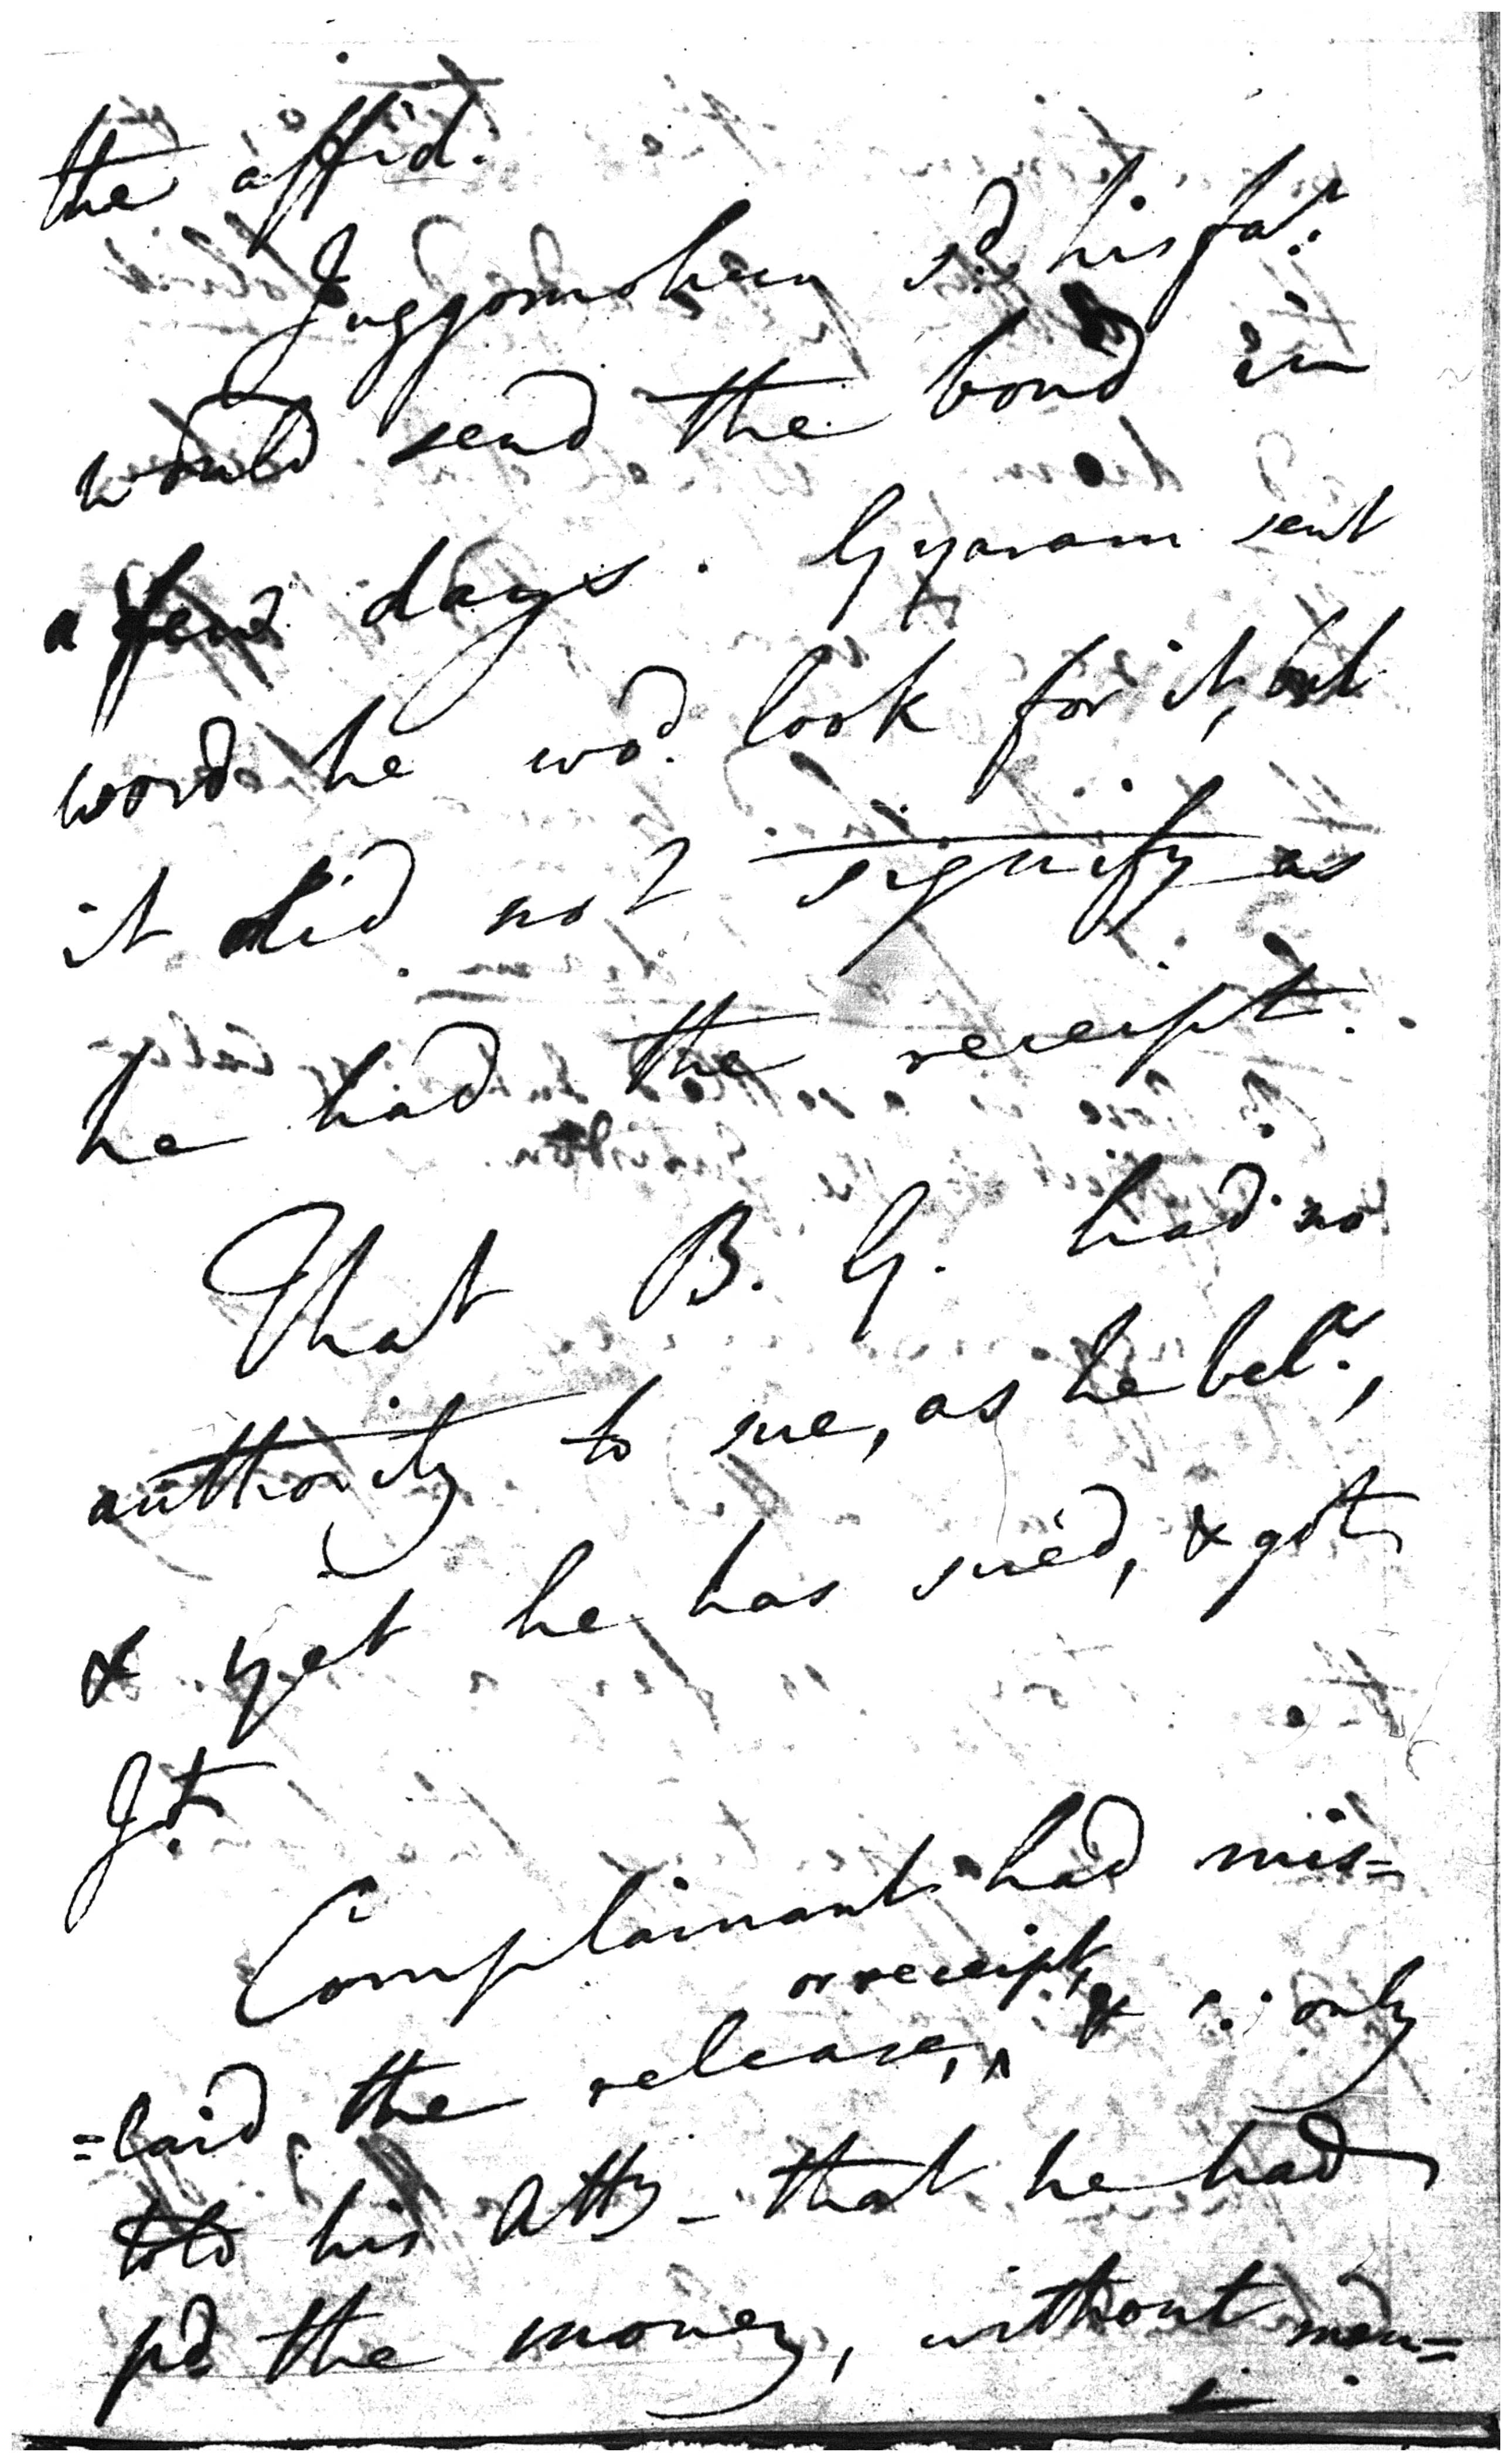 the affid.
Juggomohun sd. his far.
would send the bond in
a few days. Gyaram sent
word he wod. look for it, but
it did not signify as
he had the receipt.
That B. G. had no
authority to sue, as he bels.,
& yet he has sued, & got
Jt.
Complainant had mis=
or receipt,
=laid the release, ^ & only
told his Atty - that he had
pd the money, without men=